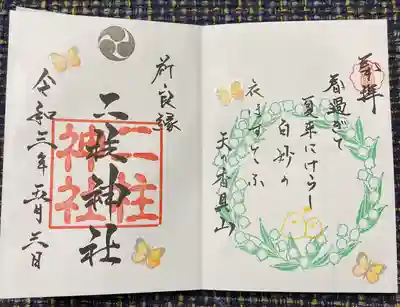 奉拝
春過ぎて
夏来にけらし
白妙の
衣ほすてふ
天の香具山
祈良縁
二柱神社
二柱
神社
令和三年五月三日